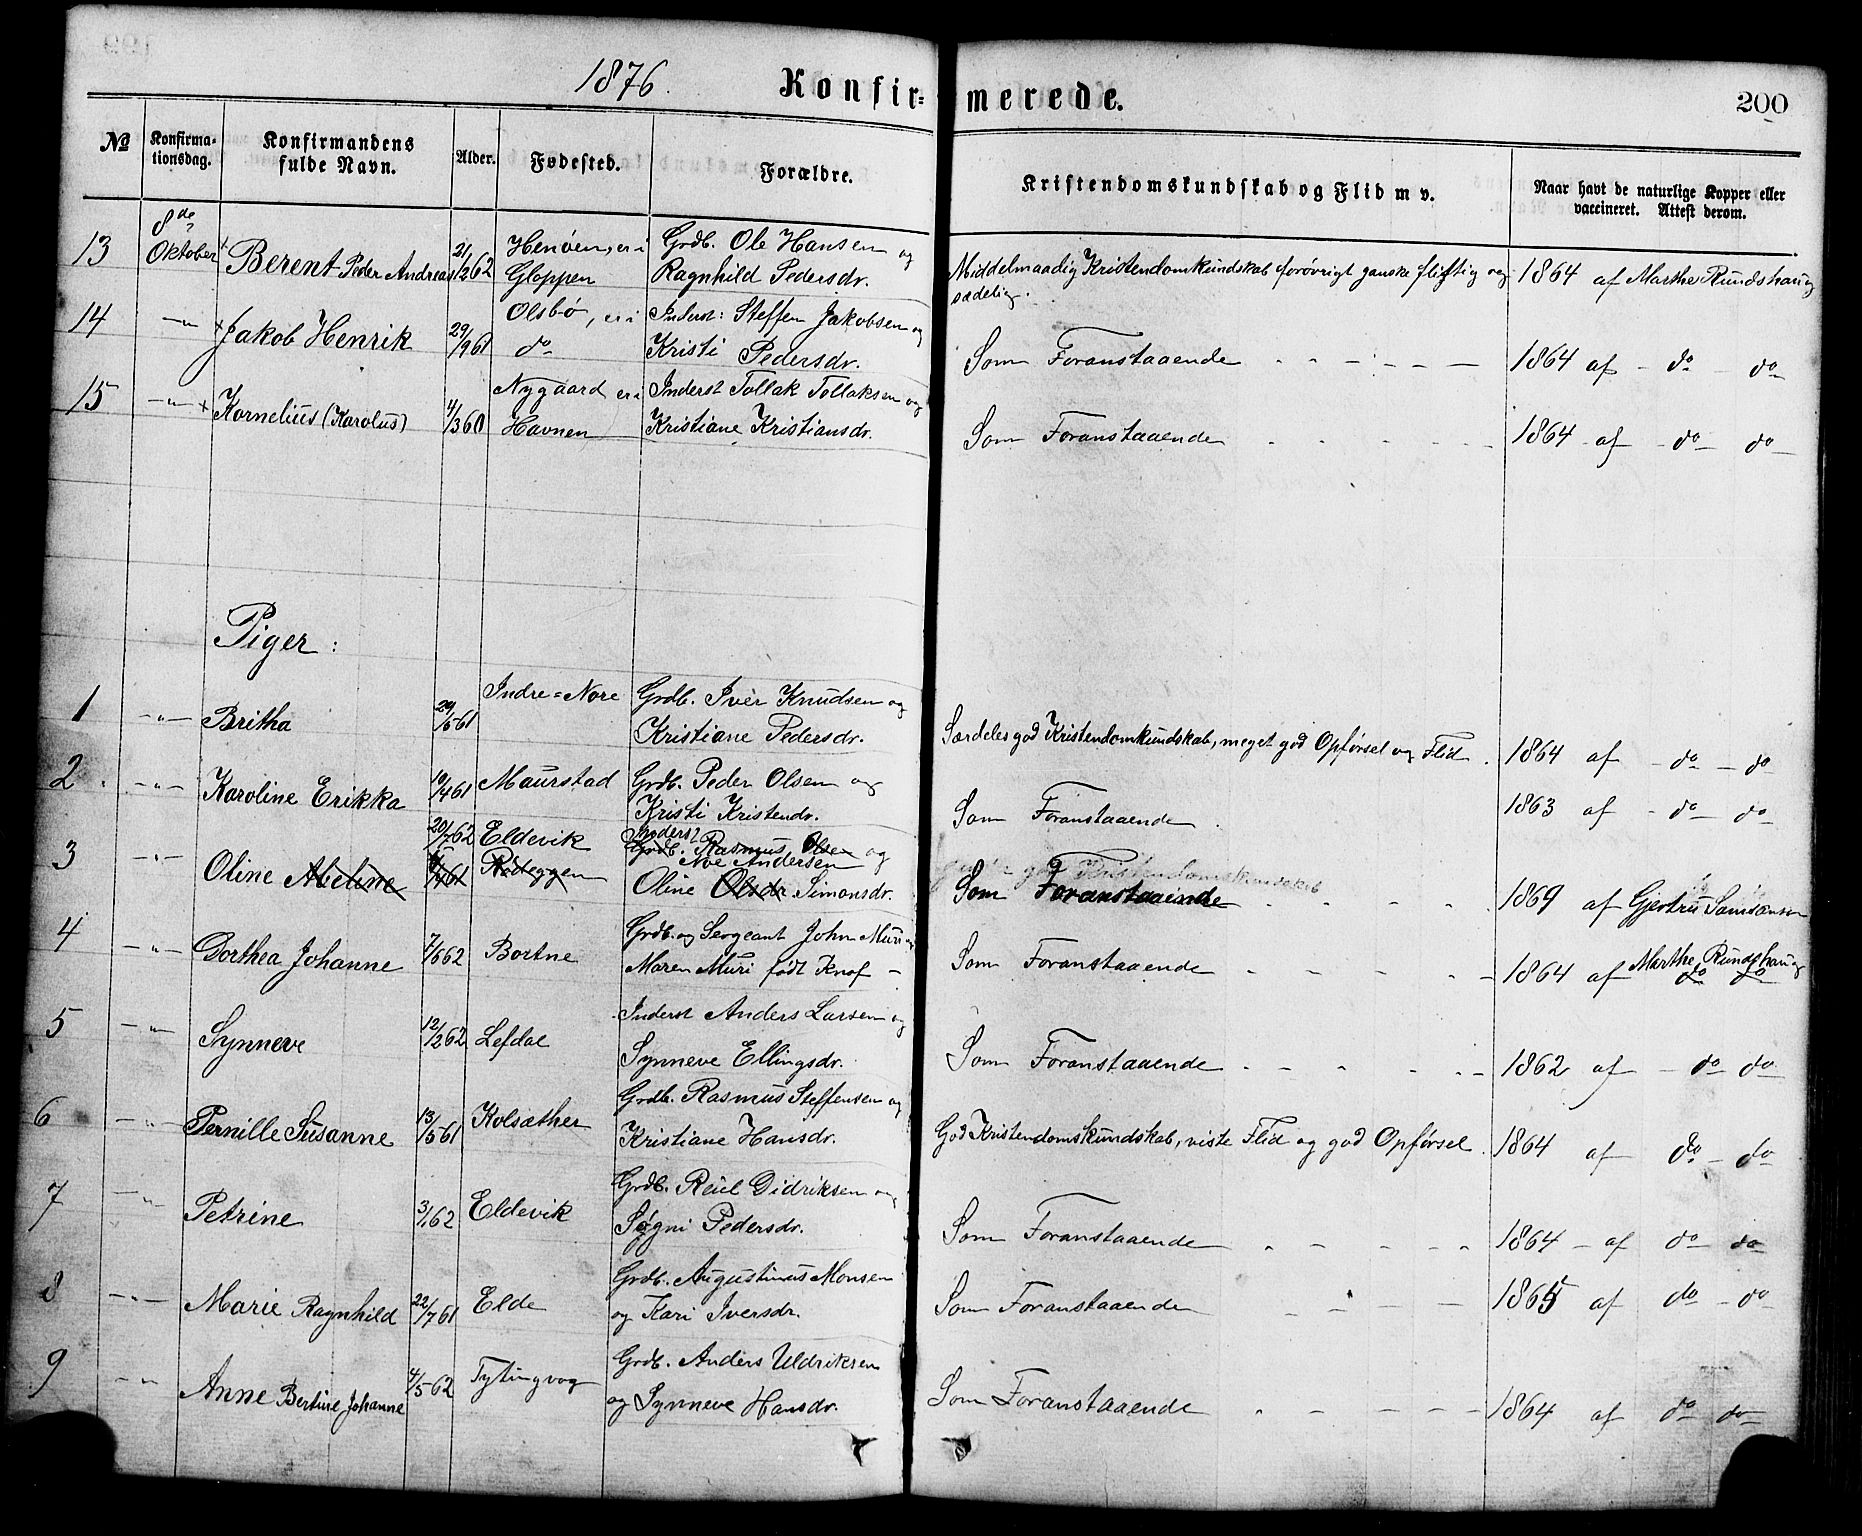 1876. Konfir= merede. 200
№ Konfirmationsdag. Konfirmandens fulde Navn. Alder. Fødested. Forældre. Kristendomskundskab og Flid m v. Naar havt de naturlige Kopper eller vaccineret. Attest derom.
8de
13 Oktober + Berent Peder Andreas 21/12 62 Henøen, er i Grdb. Ole Hansen og Middelmaadig Kristendomkundskab forøvrigt ganske fliftig og 1864 af Marthe Rundshaug
Gloppen Ragnhild Pedersdr. sædelig.
14 -"- + Jakob Henrik 29/9 61 Olsbø, er i Inderst: Steffen Jakobsen og Som Foranstaaende - - - - - - 1864 af - do - do
do Kristi Pedersdr.
15 -"- + Kornelius (Karolus) 4/3 60 Nygaard er i Inderst Tollak Tollaksen og Som Foranstaaende - - - - - - 1864 - af - do - do
Havnen Kristiane Kristiansdr.
Piger:
1 -"- Britha 29/5 61 Indre=Nore Grdb. Iver Knudsen og Særdeles god Kristendomkundskab, meget god Opførsel og Flid. 1864 af - do - do
Kristiane Pedersdr.
2 -"- Karoline Erikka 10/4 61 Maurstad Grdb. Peder Olsen og Som Foranstaaende 1863 af - do - do
Kristi Kristendr.
20/7 62 Eldevik Inderst
3 -"- Oline Abeline /4 61 Rødeggen Grdb. Rasmus Olsen og
Noe Andersen
Oline Olsdr Simonsdr. god Kristendomskundskab
Som Foranstaaende - - - - 1869 af Gjertru
4 -"- Dorthea Johanne 7/6 62 Bortne Grdb. og Sergeant John Muri og Som Foranstaaende - - - - - 1864 af Marthe Rundshaug
Maren Muri født Knof - do do
5 -"- Synneve 12/2 62 Lefdal Inderst Anders Larsen og Som Foranstaaende - - - - - 1862 af - do do
Synneve Ellingsdr.
6 -"- Pernille Susanne 13/5 61 Kolsæther Grdb. Rasmus Steffensen og God Kristendomskundskab, viste Flid og god Opførsel. 1864 af do - do
Kristiane Hansdr.
7 -"- Petrine 3/1 62 Eldevik Grdb. Reiel Didriksen og Som Foranstaaende - - - - - 1864 - af do - do
Søgni Pedersdr.
8 -"- Marie Ragnhild 22/7 61 Elde Grdb. Augustinus Monsen Som Foranstaaende - - - - 1865 af do - do
og Kari Iversdr.
9 -"- Anne Bertine Johanne 4/5 62 Tytingvog Grdb. Anders Uldriksen Som Foranstaaende - - - - - 1864 af do do
og Synneve Hansdr.